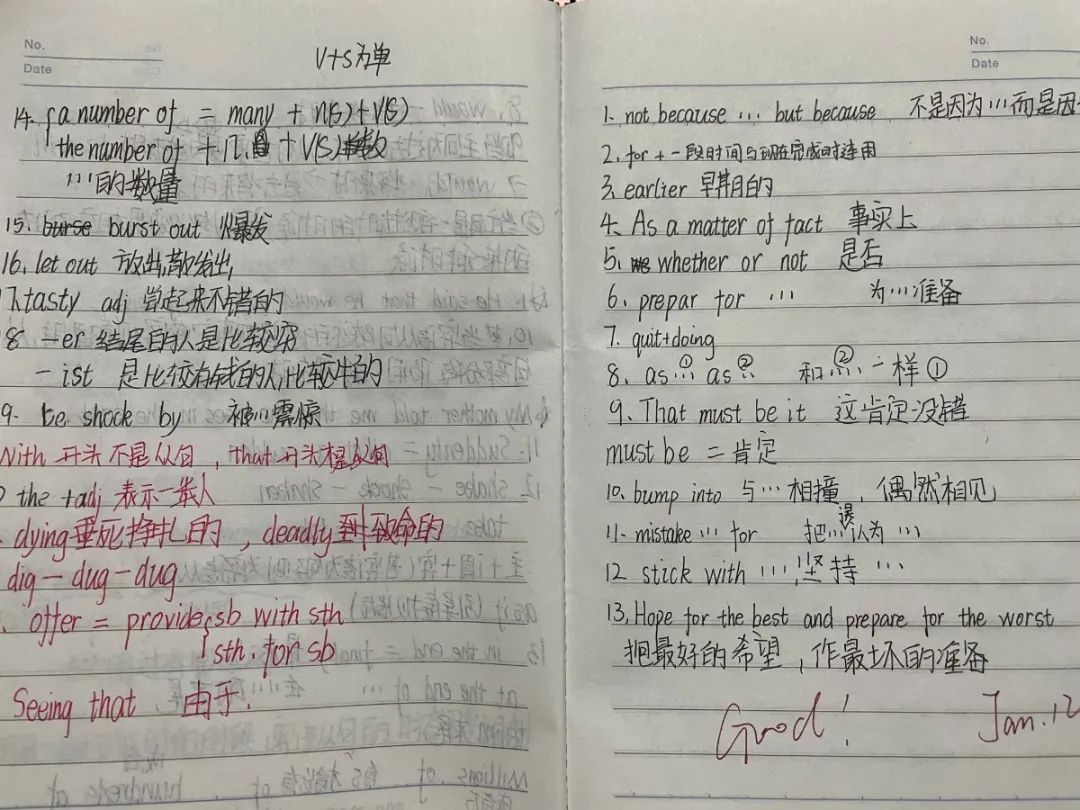 No.
Date
V+S为单
14. { a number of = many + n(s) + V(S)
the number of + n. + V(S)
…的数量
15. burst out 爆发
16. let out 放出,散发出
tasty adj 尝起来不错的
8 -er 结尾的人是比较穷
- ist 是比较有钱的人,比较牛的
9. be shock by 被…震惊
With 开头不是从句, that 开头是从句
the + adj 表示一类人
dying 垂死挣扎的, deadly 致命的
dig - dug - dug
offer = provide { sb with sth
sth. for sb
Seeing that 由于.
No.
Date
1. not because … but because 不是因为…而是因
2. for + 一段时间与现在完成时连用
3. earlier 早期的
4. As a matter of fact 事实上
5. whether or not 是否
6. prepar for … 为…准备
7. quit+doing
8. as …① as …② 和…②一样①
9. That must be it 这肯定没错
must be = 肯定
10. bump into 与…相撞, 偶然相见
11. mistake … for 把…误认为…
12 stick with … 坚持 …
13. Hope for the best and prepare for the worst
抱最好的希望, 作最坏的准备
Good! Jan. 12